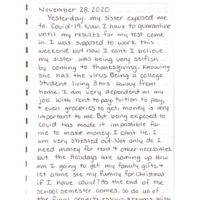 November 28, 2020
Yesterday, my sister exposed me
to Covid-19. Now I have to quarantine
until my results for my test come
in. I was supposed to work this
weekend, but now I can't. I believe
my sister was being very selfish
by coming to thanksgiving. Knowing
she had the virus. Being a college
student living 3 hrs away from
home. I am very dependent on my
job. With rent to pay, tuition to pay,
+ even groceries to get, money is very
important to me. But being exposed to
Covid has made it impossible for
me to make money. I can't lie, I
am very stressed out. Not only do I
need money for rent + other necessities
but the holidays are coming up. How
am I going to get my family gifts +
let alone see my family for Christmas
if I have covid? to the end of the
school semester comes, so do all of
the final projects